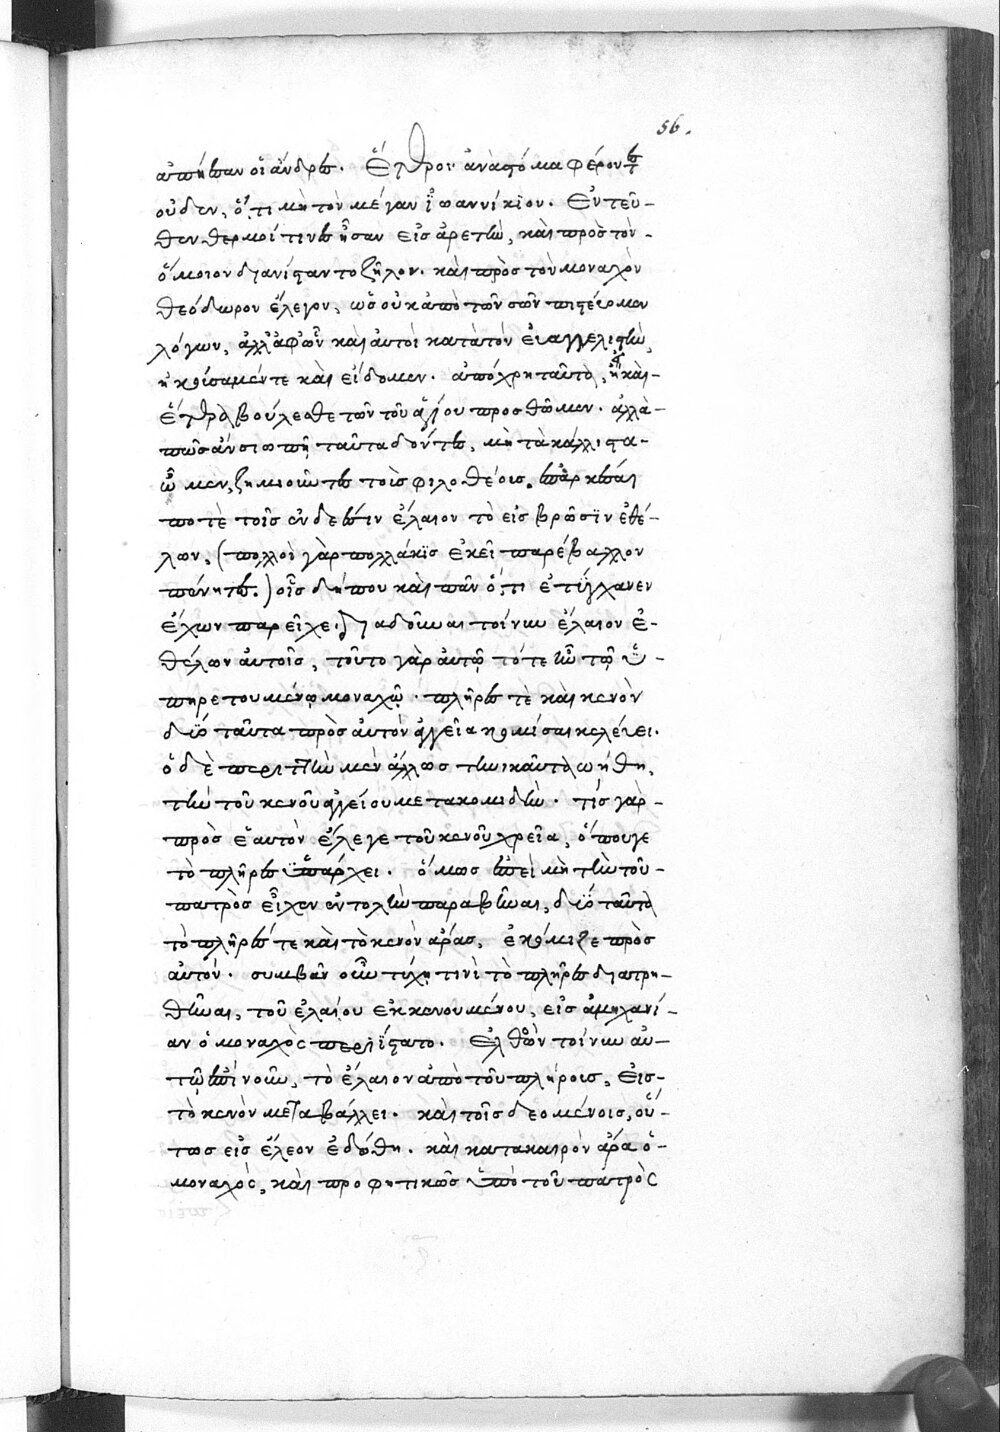 56.
ἀπῄεσαν οἱ ἄνδρες. Ἕτεροι ἀνὰ στόμα φέροντες
οὐδὲν, ὅ, τι μὴ τὸν μέγαν ἰωαννίκιον. Ἐντεῦ-
θεν θερμοί τινες ἦσαν εἰς ἀρετὴν, καὶ πρὸς τὸν
ὅμοιον διανίσταντο ζῆλον. καὶ πρὸς τὸν μοναχὸν
θεόδωρον ἔλεγον, ὡς οὐκ ἀπὸ τῶν σῶν πιστεύομεν
λόγων, ἀλλ' ἀφ' ὧν καὶ αὐτοὶ κατὰ τὸν εὐαγγελιστὴν,
ἠκούσαμέν τε καὶ εἴδομεν. ἀπόχρη ταῦτα, ἢ καὶ
ἕτερα βούλεσθε τῶν τοῦ ἁγίου προσθῶμεν. ἀλλὰ
πῶς ἂν σιωπῇ ταῦτα δόντες, μὴ τὰ κάλλιστα
ὦμεν ζημιοῦντες τοῖς φιλοθέοις. ἐπαρκέσαι
ποτὲ τοῖς ἐνδεέσιν ἔλαιον τὸ εἰς βρῶσιν ἐθέ-
λων, (πολλοὶ γὰρ πολλάκις ἐκεῖ παρέβαλλον
πένητες.) οἷς δήπου καὶ πᾶν ὅ, τι ἐτύγχανεν
ἔχων παρεῖχε. διαδοῦναι τοίνυν ἔλαιον ἐ-
θέλων αὐτοῖς, τοῦτο γὰρ αὐτῷ τότε ἦν τῷ ὑ-
πηρετουμένῳ μοναχῷ. πλῆρες τὲ καὶ κενὸν
δύο ταῦτα πρὸς αὐτὸν ἀγγεῖα κομίσαι κελεύει.
ὁ δὲ περιττὴν μὲν ἄλλως τὴν καῦτα ᾠήθη,
τὴν τοῦ κενοῦ ἀγγείου μετακομιδήν. τίς γὰρ
πρὸς ἑαυτὸν ἔλεγε τοῦ κενοῦ χρεία, ὅπουγε
τὸ πλῆρες ὑπάρχει. ὅμως ἐπεὶ μὴ τὴν τοῦ
πατρὸς εἶχεν ἐντολὴν παραβῆναι, δύο ταῦτα
τὸ πλῆρές τε καὶ τὸ κενὸν ἄρας, ἐκόμιζε πρὸς
αὐτόν. συμβὰν οὖν τύχῃ τινὶ τὸ πλῆρες διατρη-
θῆναι, τοῦ ἐλαίου ἐκκενουμένου, εἰς ἀμηχανί-
αν ὁ μοναχὸς περιΐστατο. Ἐλθὼν τοίνυν αὐ-
τῷ ἐπίνουν, τὸ ἔλαιον ἀπὸ τοῦ πλήροις, εἰς
τὸ κενὸν μεταβάλλει. καὶ τοῖς δεομένοις, οὕ-
τως εἰς ἔλεον ἐδόθη. καὶ κατακαιρὸν ἄρα ὁ
μοναχὸς, καὶ προφητικῶς ὑπὸ τοῦ πατρὸς